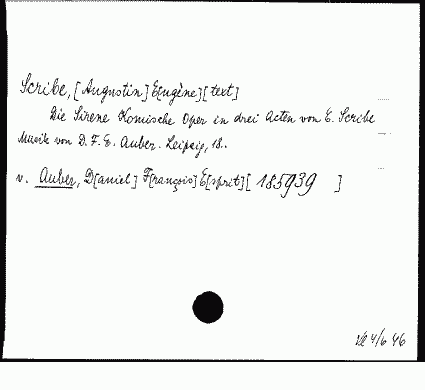 Scribe, [Augustin] E[ugène] [text]
Die Sirene Komische Oper in drei Acten von E. Scribe
Musik von D. F. E. Auber. Leipzig, 18..
v. Auber, D[aniel] F[rançois] E[sprit] [185939 ]
4/6 46